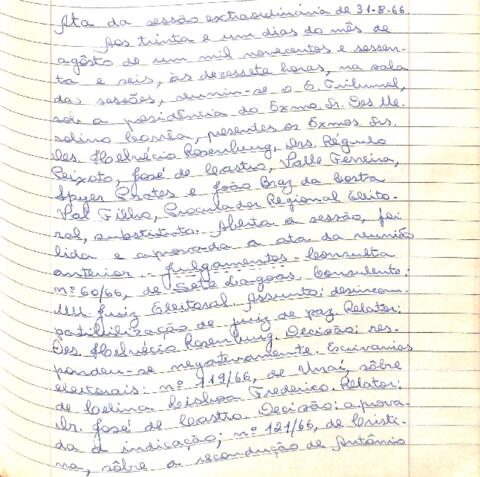 Ata da sessão extraordinária de 31-8-66
Aos trinta e um dias do mês de
agôsto de um mil novecentos e sessen-
ta e seis, às dezessete horas, na sala
das sessões, reuniu-se o E. Tribunal,
sob a presidência do Exmo. Sr. Des. Me-
solino Corrêa, presentes os Exmos. Srs.
Des. Helvécio Rosenburg, Drs. Régulo
Peixoto, José de Castro, Valle Ferreira,
Spyer Prates e João Braz da Costa
Val Filho, Procurador Regional Eleito-
ral, substituto. Aberta a sessão, foi
lida e aprovada a ata da reunião
anterior. Julgamentos - Consulta
nº 60/66, de Sete Lagoas. Consulente:
MM Juiz Eleitoral. Assunto: desincom-
patibilização de juiz de paz. Relator:
Des. Helvécio Rosenburg. Decisão: res-
pondeu-se negativamente. Escrivanias
eleitorais: nº 119/66, de Unaí, sôbre
de Celina Lisboa Frederico. Relator:
Dr. José de Castro. Decisão: aprova-
da a indicação; nº 121/66, de Cristi-
na, sôbre a recondução de Antônio